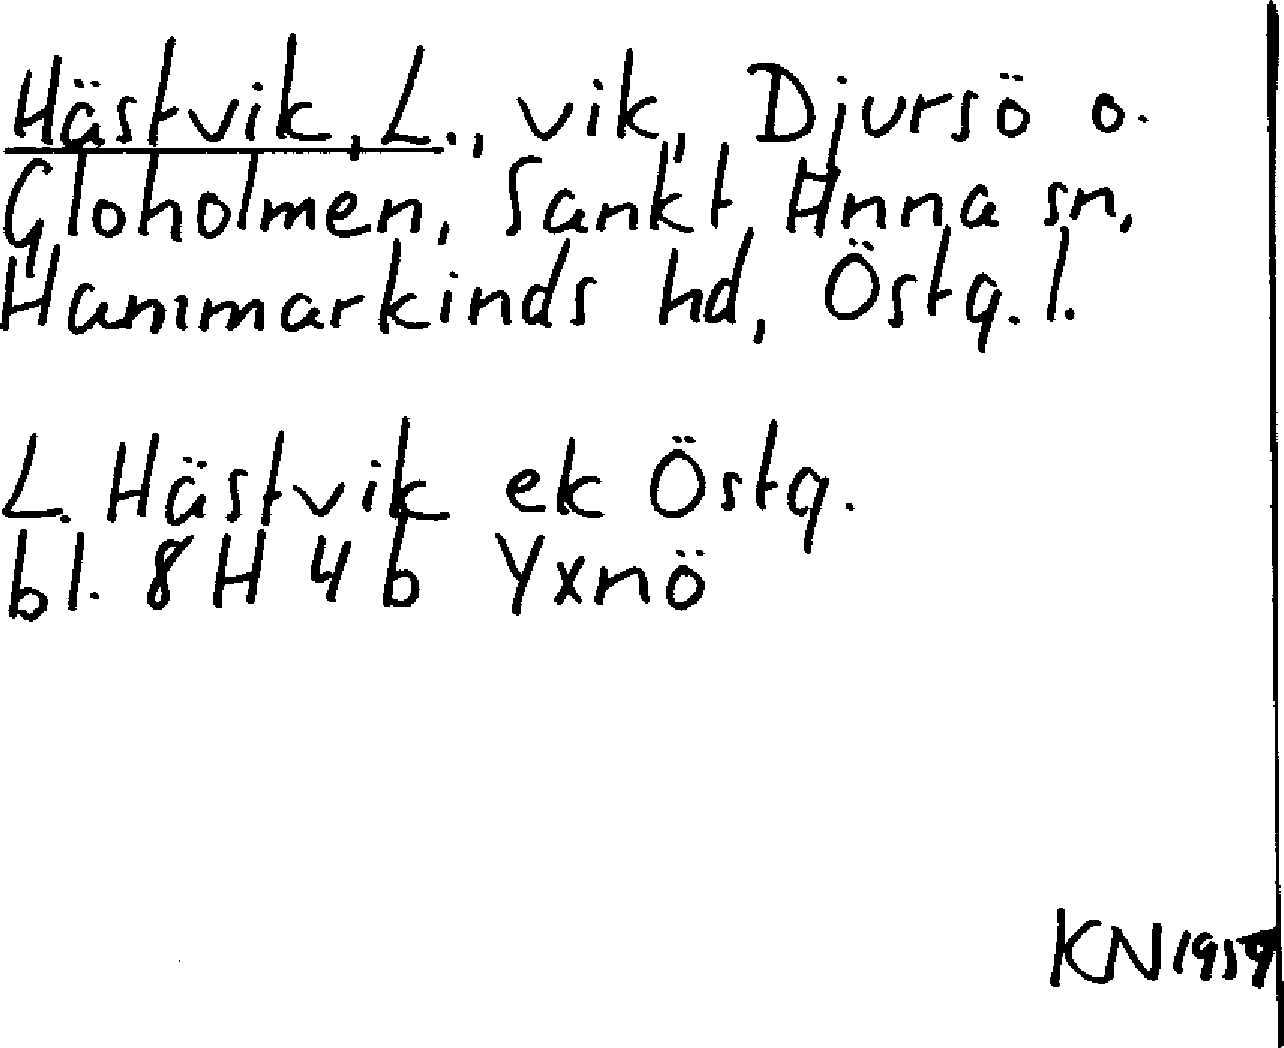 Hästvik, L., vik, Djursö o.
Gloholmen, Sankt Anna sn,
Hammarkinds hd, Östg. l.
L. Hästvik ek Östg.
bl. 8H 4b Yxnö
KN 1959